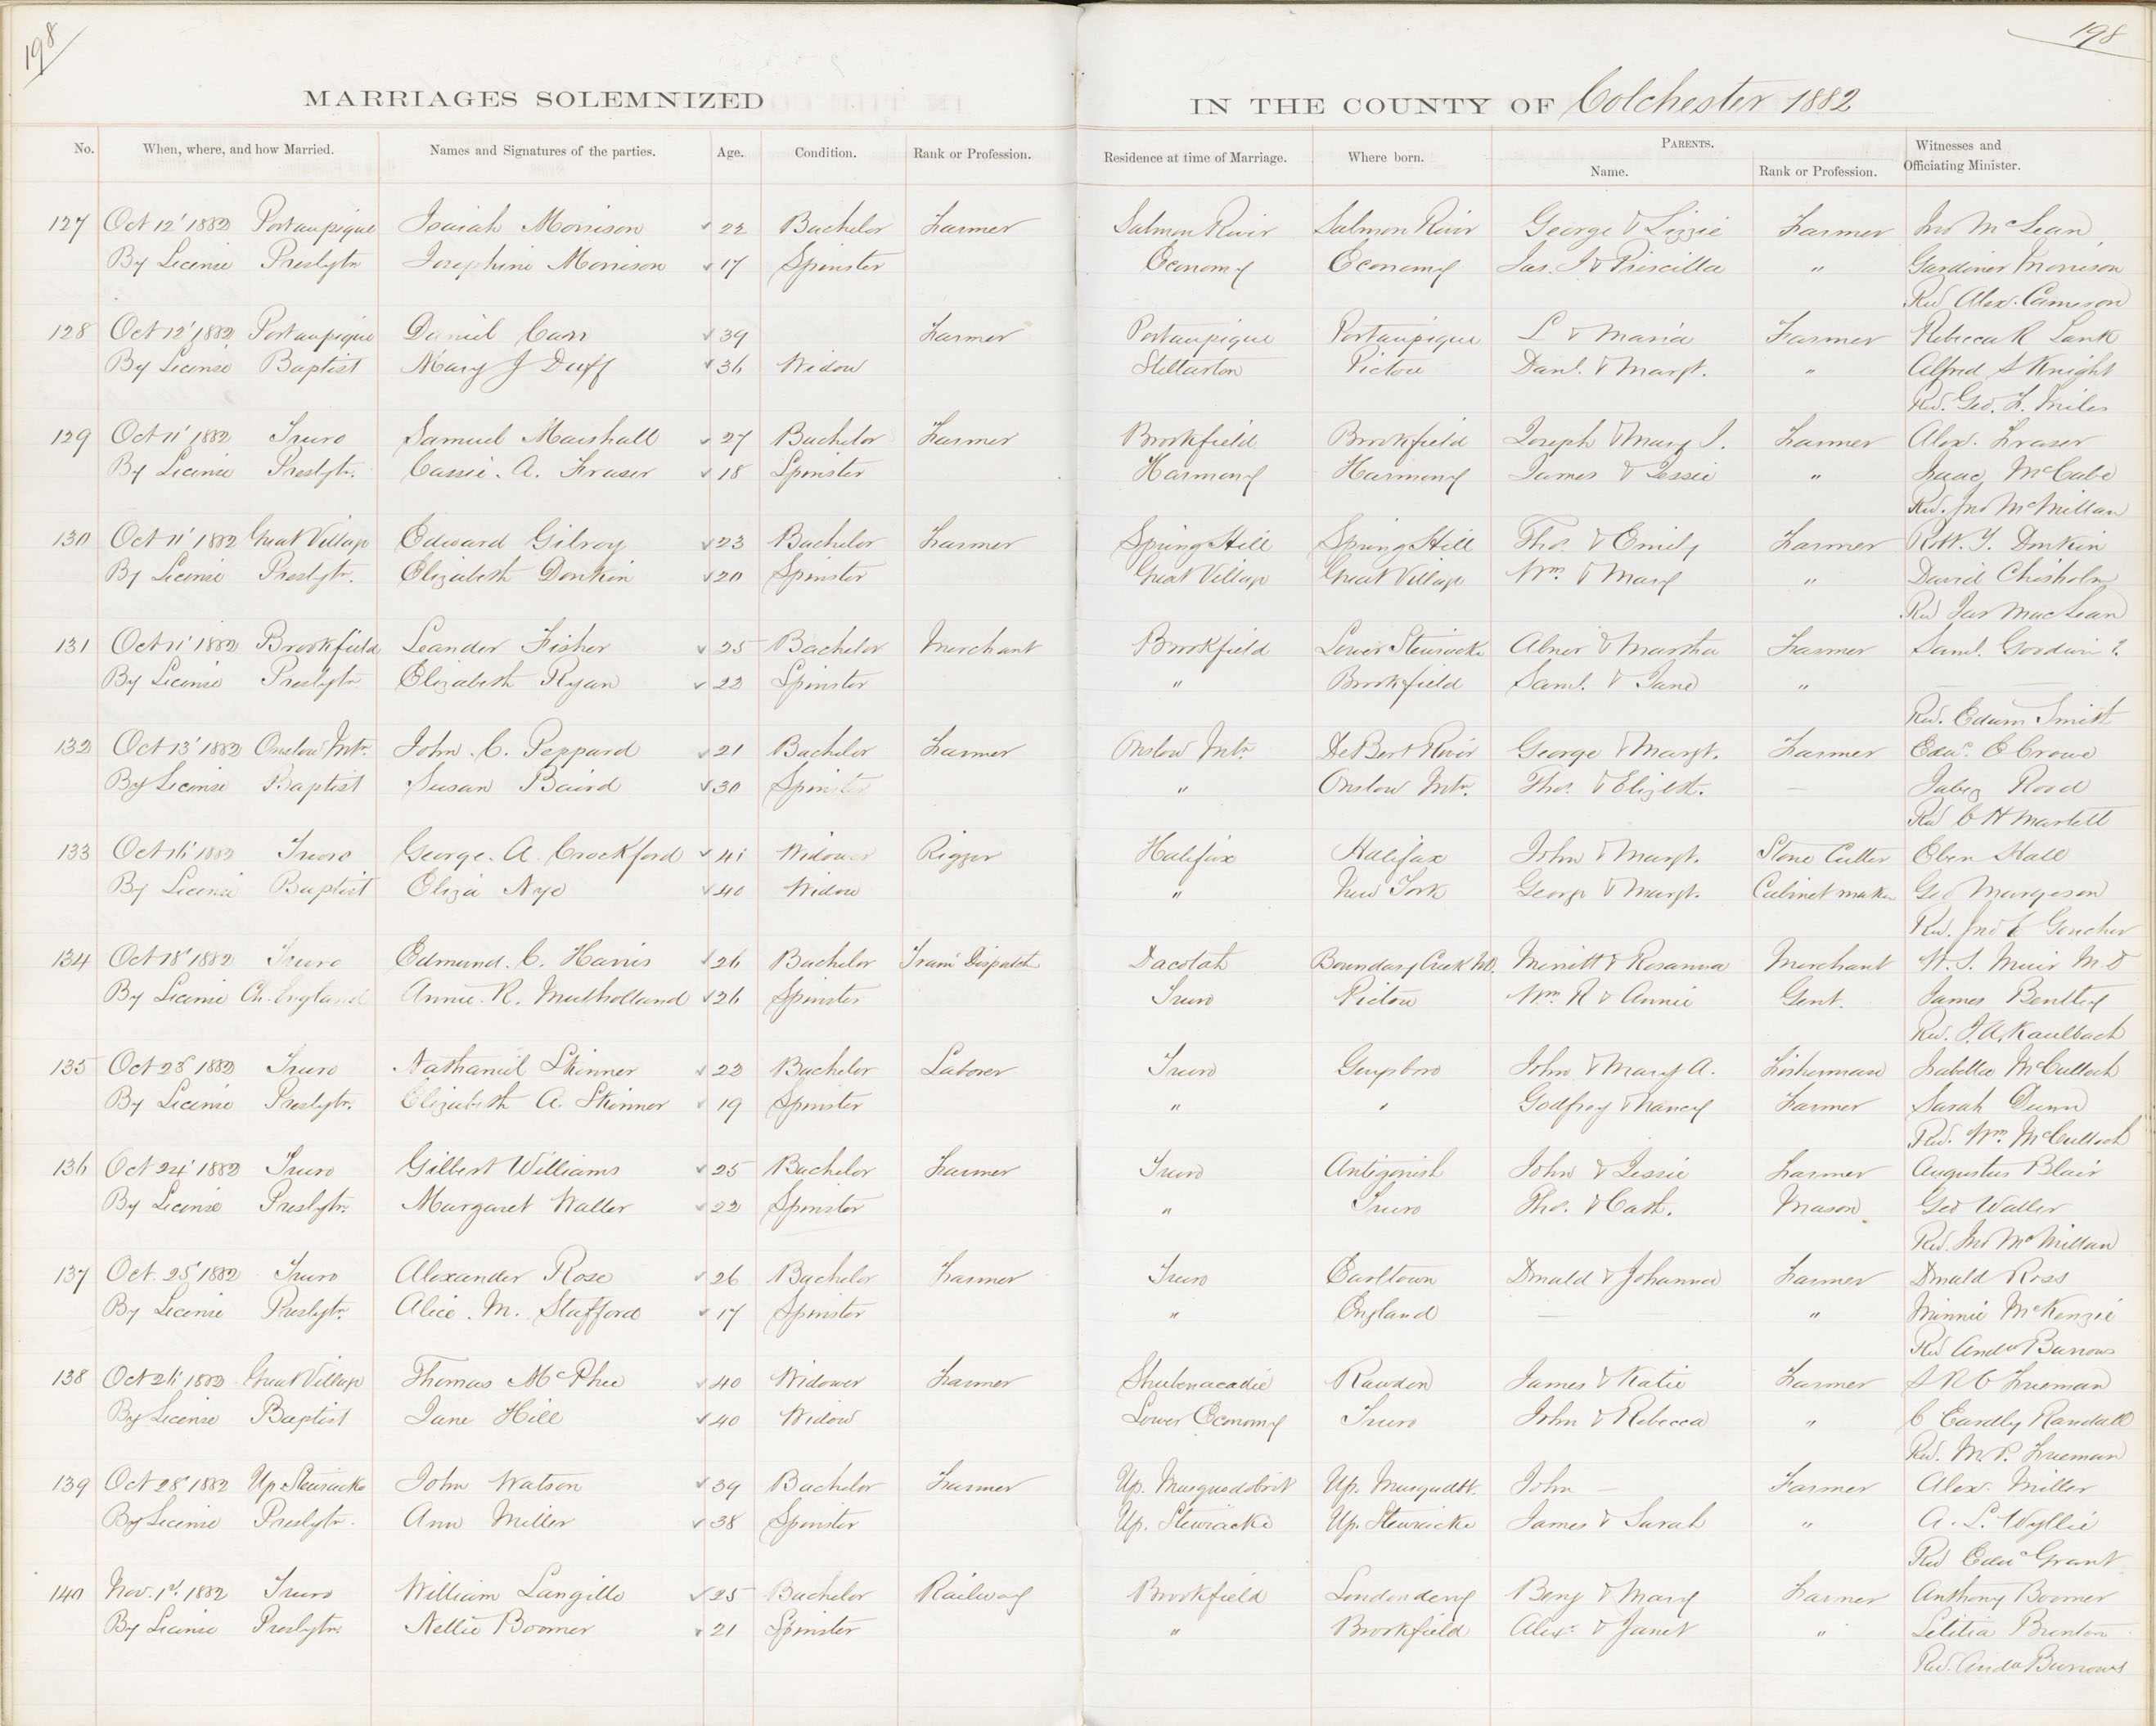 198
198
MARRIAGES SOLEMNIZED IN THE COUNTY OF Colchester 1882
No. When, where, and how Married. Names and Signatures of the parties. Age. Condition. Rank or Profession. Residence at time of Marriage. Where born. Parents. Name. Rank or Profession. Witnesses and Officiating Minister.
127 Oct 12' 1882 Portaupique Isaiah Morrison 22 Bachelor Farmer Salmon River Salmon River George & Lizzie Farmer Jno McLean
By License Presbytn Josephine Morrison 17 Spinster Economy Economy Jas. I & Priscilla " Gardiner Morrison
Revd Alex. Cameron
128 Oct 12' 1882 Portaupique Daniel Carr 39 Farmer Portaupique Portaupique L & Maria Farmer Rebecca R Lank
By License Baptist Mary J Duff 36 Widow Stellarton Pictou Danl. & Margt. " Alfred S Knight
Revd. Geo. F. Miles
129 Oct 11' 1882 Truro Samuel Marshall 27 Bachelor Farmer Brookfield Brookfield Joseph & Mary J. Farmer Alex. Fraser
By License Presbytn. Cassie. A. Fraser 18 Spinster Harmony Harmony James & Jessie " Isaac McCabe
Revd. Jno McMillan
130 Oct 11' 1882 Great Village Edward Gilroy 23 Bachelor Farmer Spring Hill Spring Hill Thos. & Emily Farmer R.W. Y. Donkin
By License Presbytn. Elizabeth Donkin 20 Spinster Great Village Great Village Wm. & Mary " David Chisholm
Revd Jas MacLean
131 Oct 11' 1882 Brookfield Leander Fisher 25 Bachelor Merchant Brookfield Lower Stewiacke Abner & Martha Farmer Saml. Goodwin ?
By License Presbytn Elizabeth Ryan 22 Spinster " Brookfield Saml. & Jane " —
Revd. Edwin Smith
132 Oct 13' 1882 Onslow Mtn. John. C. Peppard 21 Bachelor Farmer Onslow Mtn. DeBert River George & Margt. Farmer Edwd. C Crowe
By License Baptist Susan Baird 30 Spinster " Onslow Mtn. Thos. & Elizbth. — Jabez Rood
Revd C H Martell
133 Oct 16' 1882 Truro George. A. Crockford 41 Widower Rigger Halifax Halifax John & Margt. Stone Cutter Eben Stall
By License Baptist Eliza Nye 40 Widow " New York George & Margt. Cabinet maker Geo Margeson
Revd. Jno E Goucher
134 Oct 18' 1882 Truro Edmund. C. Harris 26 Bachelor Train Dispatch Dacotah Boundary Creek NB. Merritt & Rosanna Merchant W. S. Muir M.D
By License Ch. England Annie. R. Mulholland 26 Spinster Truro Pictou Wm. R & Annie Gent. James Bentley
Revd. J. A. Kaulbach
135 Oct 28' 1882 Truro Nathaniel Skinner 22 Bachelor Laborer Truro Guysboro John & Mary A. Fisherman Isabella McCulloch
By License Presbytn. Elizabeth A. Skinner 19 Spinster " " Godfrey & Nancy Farmer Sarah Dunn
Revd. Wm. McCulloch
136 Oct 24' 1882 Truro Gilbert Williams 25 Bachelor Farmer Truro Antigonish John & Jessie Farmer Augustus Blair
By License Presbytn. Margaret Waller 22 Spinster " Truro Thos. & Cath. Mason Geo Waller
Revd. Jno McMillan
137 Oct. 25' 1882 Truro Alexander Rose 26 Bachelor Farmer Truro Earltown Donald & Johanna Farmer Donald Ross
By License Presbytn. Alice. M. Stafford 17 Spinster " England — " Minnie McKenzie
Revd Andw Burrows
138 Oct 26' 1882 Great Village Thomas McPhee 40 Widower Farmer Shubenacadie Rawdon James & Katie Farmer S R C Freeman
By License Baptist Jane Hill 40 Widow Lower Economy Truro John & Rebecca " C Eardly Randall
Revd. M. P. Freeman
139 Oct 28' 1882 Up Stewiacke John Watson 39 Bachelor Farmer Up. Musquodoboit Up. Musquodbt. John — Farmer Alex. Miller
By License Presbytn. Ann Miller 38 Spinster Up. Stewiacke Up. Stewiacke James & Sarah " A. L. Wyllie
Revd Edwd Grant
140 Nov. 1st. 1882 Truro William Langille 25 Bachelor Railway Brookfield Londonderry Benj & Mary Farmer Anthony Boomer
By License Presbytn. Nellie Boomer 21 Spinster " Brookfield Alexr. & Janet " Letitia Brenton
Revd. Andw Burrows